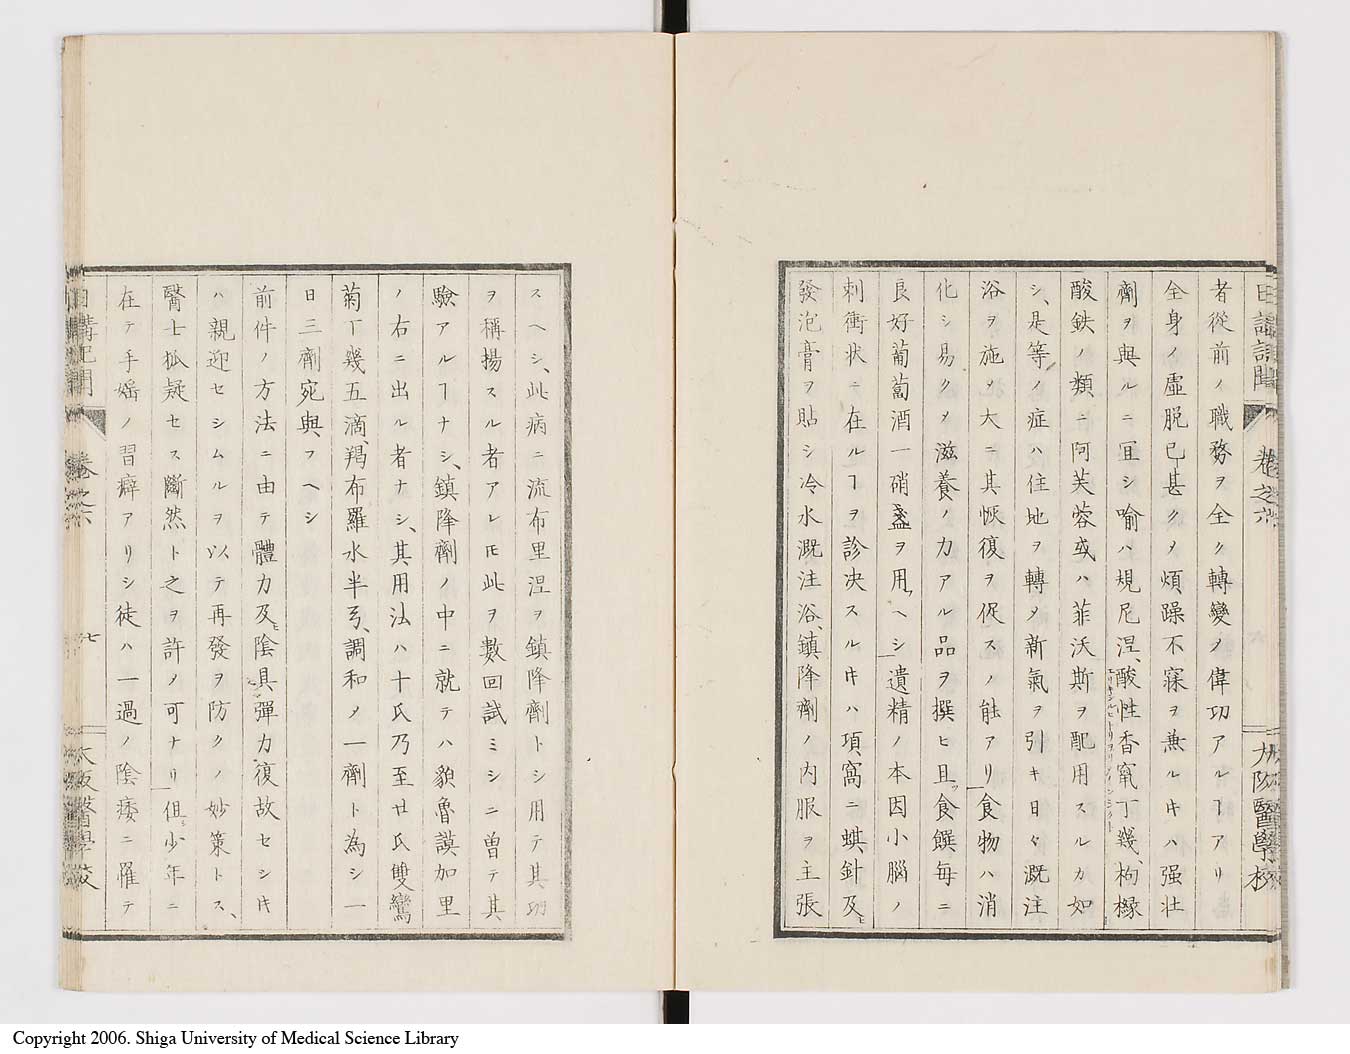 日講記聞 卷之六 大阪醫學校
者從前ノ職務ヲ全ク轉變ノ偉功アルヿアリ
全身ノ虛脱已甚クメ煩躁不寐ヲ兼ルキハ强壯
劑ヲ與ルニ宜シ喻ハ規尼涅、酸性香竄丁幾、枸櫞
酸鉄ノ類ニ阿芙蓉或ハ菲沃斯ヲ配用スルカ如
シ、是等ノ症ハ住地ヲ轉メ新氣ヲ引キ日々溉注
浴ヲ施メ大ニ其恢復ヲ促スノ能アリ食物ハ消
化シ易クメ滋養ノ力アル品ヲ撰ヒ且ツ食饌每ニ
良好葡萄酒一硝盞ヲ用ヘシ遺精ノ本因小腦ノ
刺衝狀ニ在ルヿヲ診决スルキハ項窩ニ蜞針及ヒ
發泡膏ヲ貼シ冷水溉注浴、鎮降劑ノ内服ヲ主張
スヘシ、此病ニ流布里涅ヲ鎮降劑トシ用テ其功
ヲ稱揚スル者アレ𪜈此ヲ數回試ミシニ曽テ其
驗アルヿナシ、鎮降劑ノ中ニ就テハ貌魯謨加里
ノ右ニ出ル者ナシ、其用法ハ十氏乃至廿氏雙鸞
菊丁幾五滴、羯布羅水半弓、調和メ一劑ト為シ一
日三劑宛與フヘシ
前件ノ方法ニ由テ體力及ヒ陰具彈力復故セシキ
ハ親迎セシムルヲ以テ再發ヲ防クノ妙策トス、
醫士狐疑セス斷然ト之ヲ許メ可ナリ但シ少年ニ
在テ手婬ノ習癖アリシ徒ハ一過ノ陰痿ニ罹テ
日講記聞 卷之六 七 大阪醫學校
Copyright 2006. Shiga University of Medical Science Library